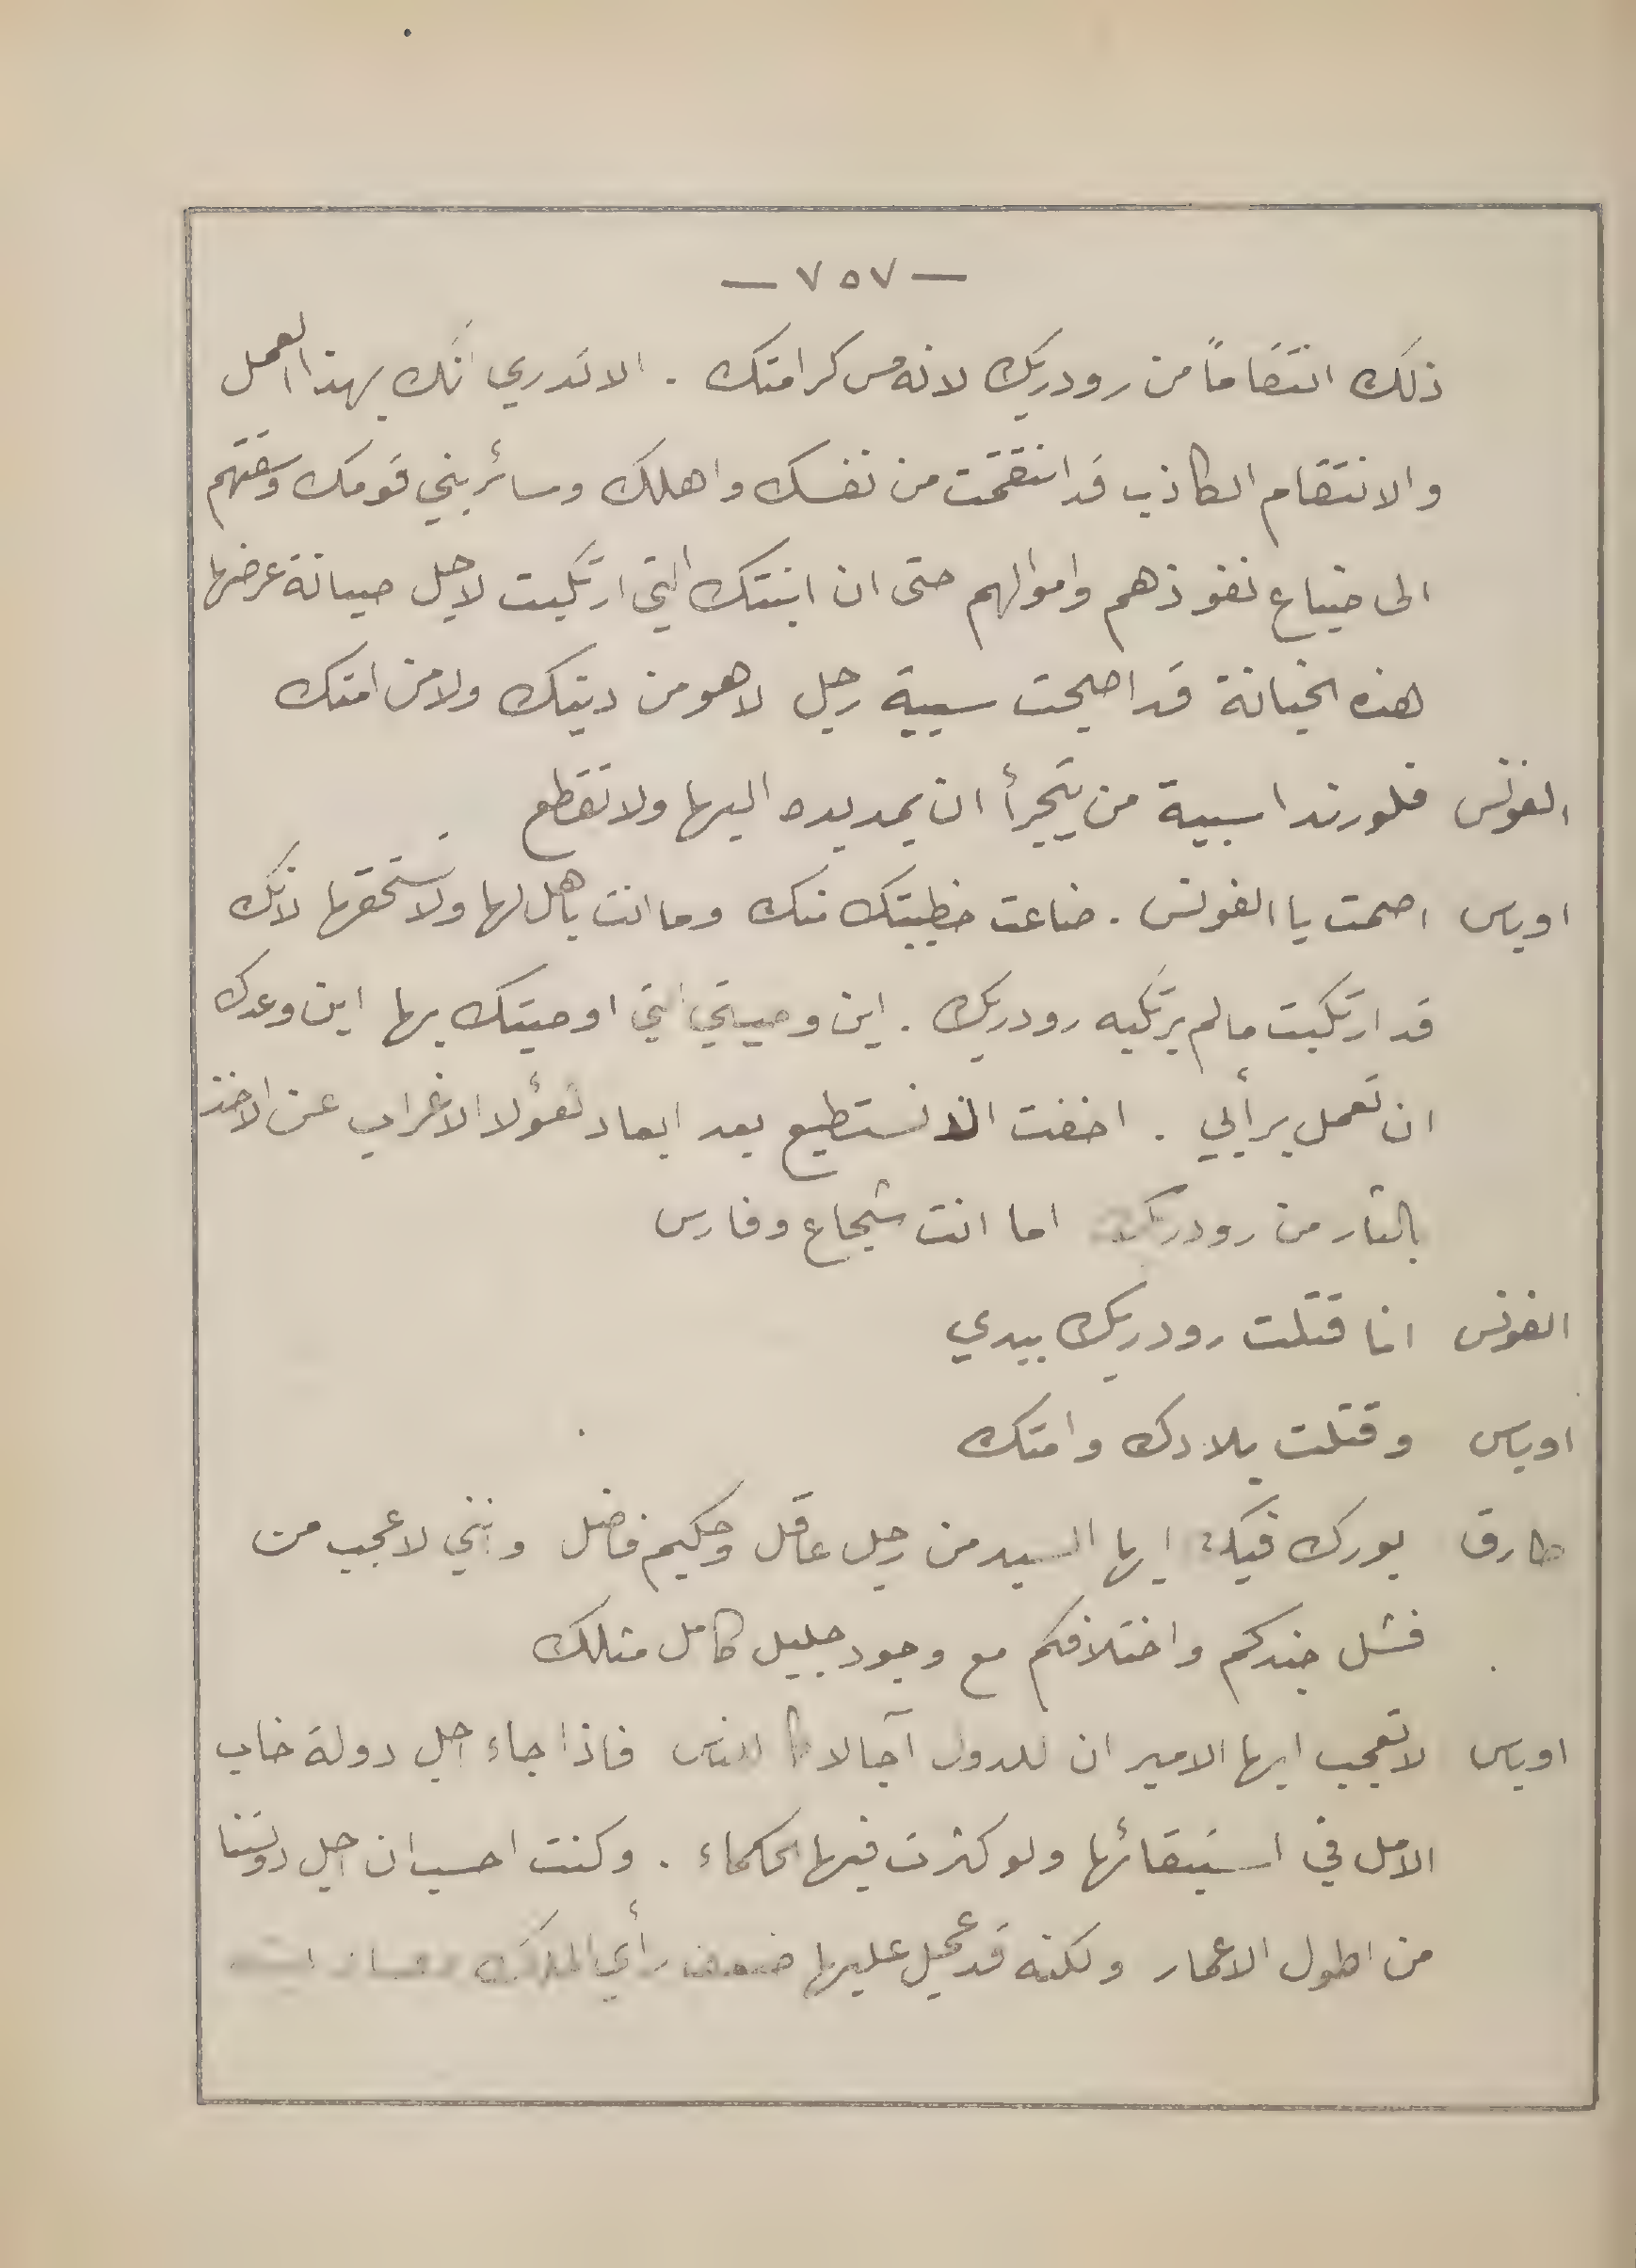 — ٧٥٧ —
ذلك انتقاماً من رودريك لانه مس كرامتك . الا تدري انك بهذا العمل
والانتقام الكاذب قد انتقمت من نفسك واهلك وسائر بني قومك وسقتهم
الى ضياع نفوذهم واموالهم حتى ان ابنتك التي ارتكبت لاجل صيانة عرضها
هذه الخيانة قد اصبحت سبية رجل لا هو من دينك ولا من امتك
الفونس فلورندا سبية من يتجرأ ان يمد يده اليها ولا تقطع
اوباس اصمت يا الفونس . ضاعت خطيبتك منك وما انت باهل لها ولا تستحقها لانك
قد ارتكبت ما لم يرتكبه رودريك . اين وصيتي التي اوصيتك بها اين وعدك
ان تعمل برأيي . اخفت الا نستطيع بعد ابعاد هؤلا الاغراب عن الاخذ
بالثار من رودريك اما انت شجاع وفارس
الفونس انا قتلت رودريك بيدي
اوباس وقتلت بلادك وامتك
طارق بورك فيك ايها السيد من رجل عاقل وحكيم فاضل وانني لاعجب من
فشل جندكم واختلافكم مع وجود جليل كامل مثلك
اوباس لا تعجب ايها الامير ان للدول آجالا كا لناس فاذا جاء اجل دولة خاب
الامل في استبقائها ولو كثرت فيها الحكماء . وكنت احسب ان اجل دولتنا
من اطول الاعمار ولكنه قد عجل عليها ضعف رأي الملك